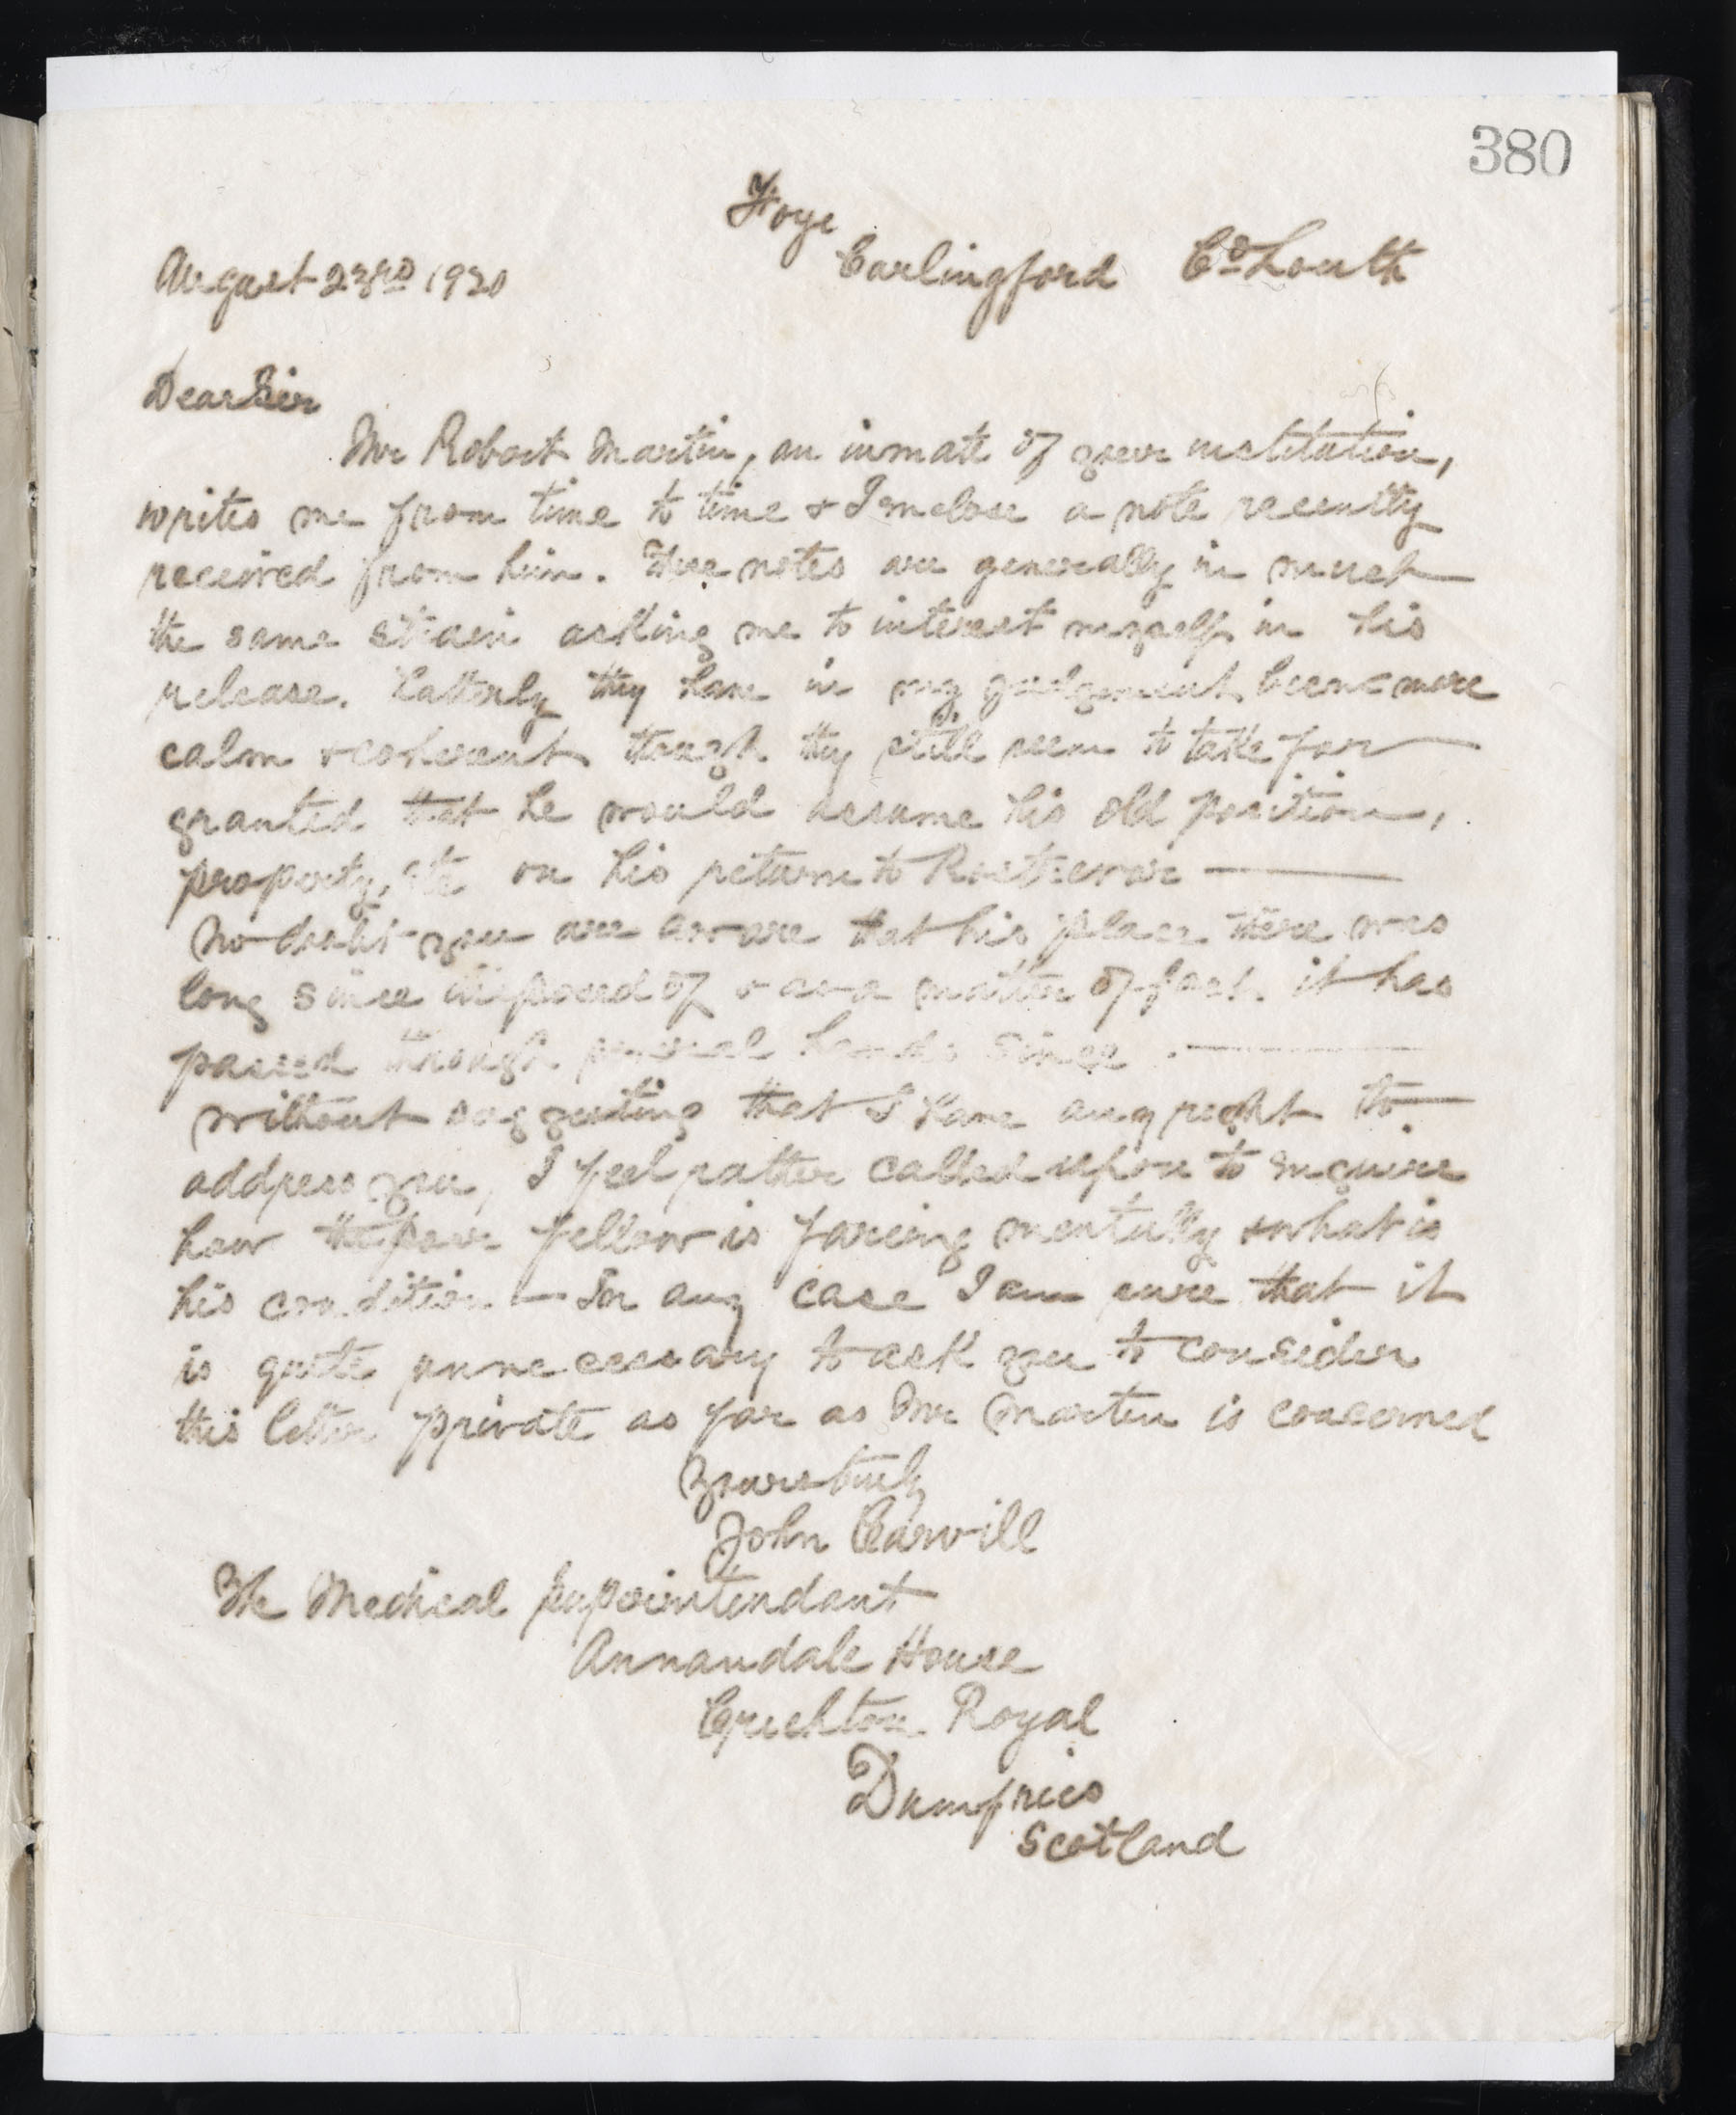 380
Foye
Carlingford Co Louth
August 23rd 1920
Dear Sir
Mr Robert Martin, an inmate of your institution,
writes me from time to time & I enclose a note recently
received from him. These notes are generally in much
the same strain asking me to interest myself in his
release. Latterly they have in my judgement been more
calm & coherent though they still seem to take for
granted that he would assume his old position,
property, etc on his return to Rostrevor
No doubt you are aware that his place there was
long since disposed of & as a matter of fact it has
passed through several hands since.
Without suggesting that I have any right to
address you, I feel rather called upon to enquire
how the poor fellow is faring mentally & what is
his condition — In any case I am sure that it
is quite unnecessary to ask you to consider
this letter private as far as Mr Martin is concerned
Yours truly
John Carvill
The Medical Superintendant
Annandale House
Crichton Royal
Dumfries
Scotland